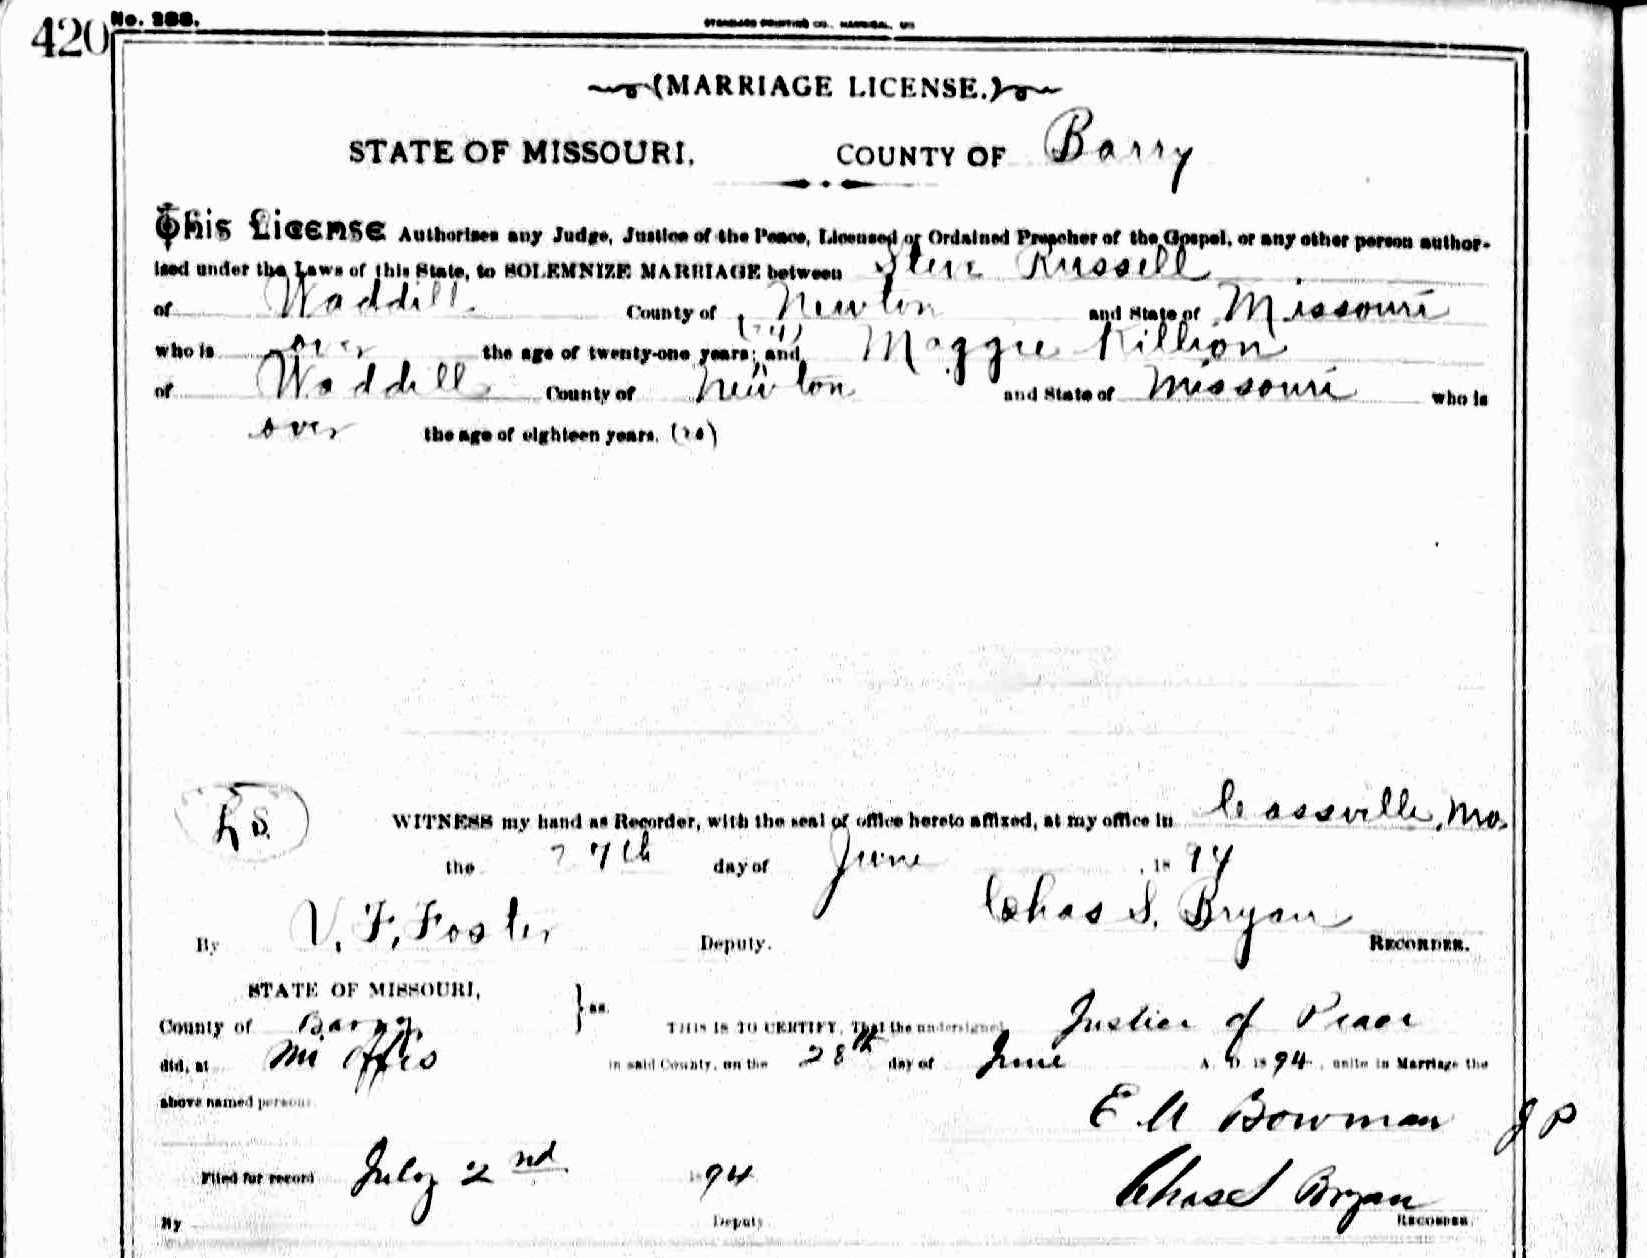 420
No. 288.
STANDARD PRINTING CO., HANNIBAL, MO
(MARRIAGE LICENSE.)
STATE OF MISSOURI, COUNTY OF Barry
This License Authorizes any Judge, Justice of the Peace, Licensed or Ordained Preacher of the Gospel, or any other person author-
ized under the Laws of this State, to SOLEMNIZE MARRIAGE between Steve Russell
of Waddill County of Newton and State of Missouri
who is over the age of twenty-one years; and Maggie Killion
of Waddill County of Newton and State of Missouri who is
over the age of eighteen years.
L S.
WITNESS my hand as Recorder, with the seal of office hereto affixed, at my office in Cassville, Mo.
the 27th day of June, 1894
By V. F. Foster Deputy. Chas S. Bryan RECORDER.
STATE OF MISSOURI, } ss.
County of Barry THIS IS TO CERTIFY, That the undersigned Justice of Peace
did, at Mi Offis in said County, on the 28th day of June A. D. 1894, unite in Marriage the
above named persons
E A Bowman J P
Filed for record July 2nd 1894 Chas S Bryan
By Deputy RECORDER.